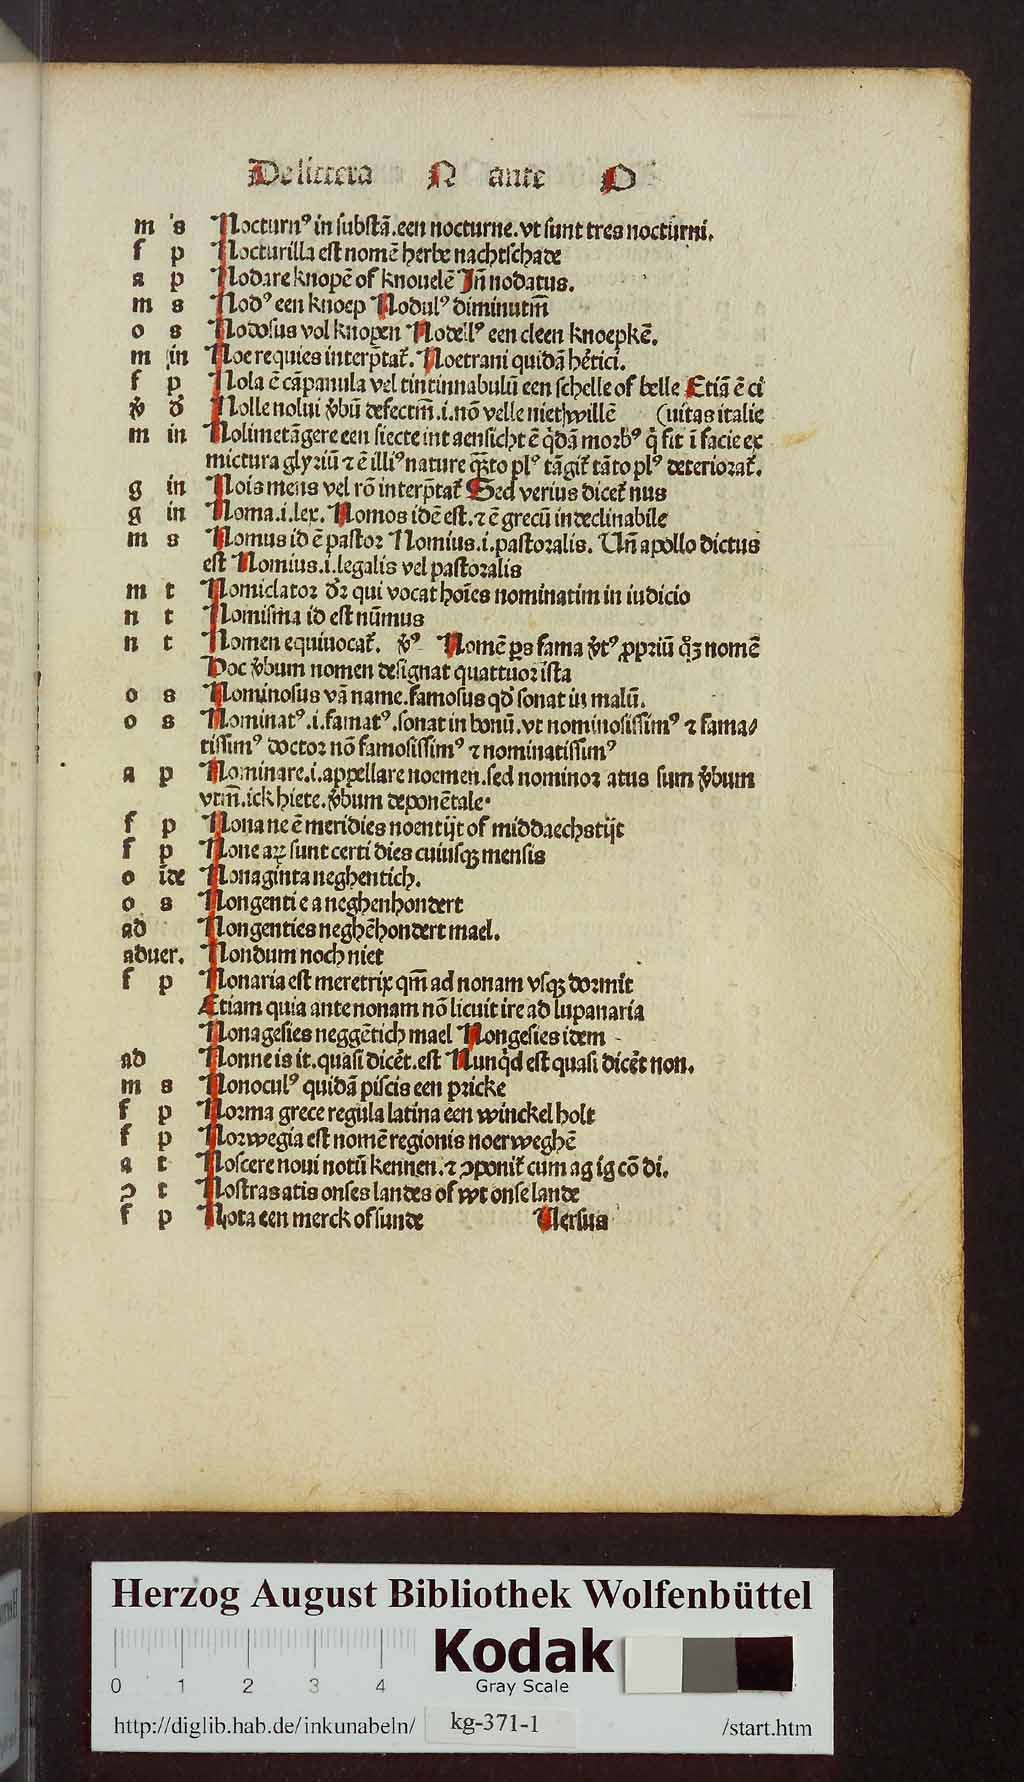 De littera N ante O
m s Nocturnꝰ in substā.een nocturne.vt sunt tres nocturni.
f p Nocturilla est nomē herbe nachtschade
a p Nodare knopē of knouelē Jn̄ nodatus.
m s Nodꝰ een knoep Nodulꝰ diminutm̄
o s Nodosus vol knopen Nodellꝰ een cleen knoepkē.
m in Noe requies interp̄tat᷑. Noetrani quidā he᷑tici.
f p Nola ē cāpanula vel tintinnabulū een schelle of belle Etiā ē ci
v̾ d᷑ Nolle nolui v̾bū defectm̄.i.nō velle niet willē (uitas italie
m in Nolimetāgere een siecte int aensicht ē q̇dā morbꝰ q̇ fit ī facie ex
mictura glyriū ⁊ ē illiꝰ nature qꝫto plꝰ tāgit᷑ tāto plꝰ deteriorat᷑.
g in Nois mens vel rō interp̄tat᷑ Sed verius dicet᷑ nus
g in Noma.i.lex. Nomos idē est.⁊ ē grecū indeclinabile
m s Nomus id ē pastor Nomius.i.pastoralis. Un̄ apollo dictus
est Nomius.i.legalis vel pastoralis
m t Nomiclator d᷑r qui vocat hoīes nominatim in iudicio
n t Nomisma id est nūmus
n t Nomen equiuocat᷑. v̾ꝰ Nomē ꝑs fama v̾tꝰ ꝓpriū qꝫ nomē
Hoc v̾bum nomen designat quattuor ista
o s Nominosus vā name.famosus qd᷑ sonat in malū.
o s Nominatꝰ.i.famatꝰ.sonat in bonū.vt nominosissimꝰ ⁊ fama⸗
tissimꝰ doctor nō famosissimꝰ ⁊ nominatissimꝰ
a p Nominare.i.appellare noemen.sed nominor atus sum v̾bum
vtm̄.ick hiete.v̾bum deponētale.
f p Nona ne ē meridies noentijt of middaechstijt
f p None aꝝ sunt certi dies cuiusqꝫ mensis
o īde Nonaginta neghentich.
o s Nongenti e a neghenhondert
ad Nongenties neghēhondert mael.
aduer. Nondum noch niet
f p Nonaria est meretrix qm̄ ad nonam vsqꝫ dormit
Etiam quia ante nonam nō licuit ire ad lupanaria
Nonagesies neggētich mael Nongesies idem
ad Nonne is it.quasi dicēt.est Nunq̇d est quasi dicēt non.
m s Nonoculꝰ quidā piscis een pricke
f p Norma grece regula latina een winckel holt
f p Norwegia est nomē regionis noerweghē
a t Noscere noui notū kennen.⁊ ↄponit᷑ cum ag ig cō di.
ↄ t Nostras atis onses landes of wt onse lande
f p Nota een merck of sunde Versus
Herzog August Bibliothek Wolfenbüttel
0 1 2 3 4
Kodak
Gray Scale
http://diglib.hab.de/inkunabeln/ kg-371-1 /start.htm